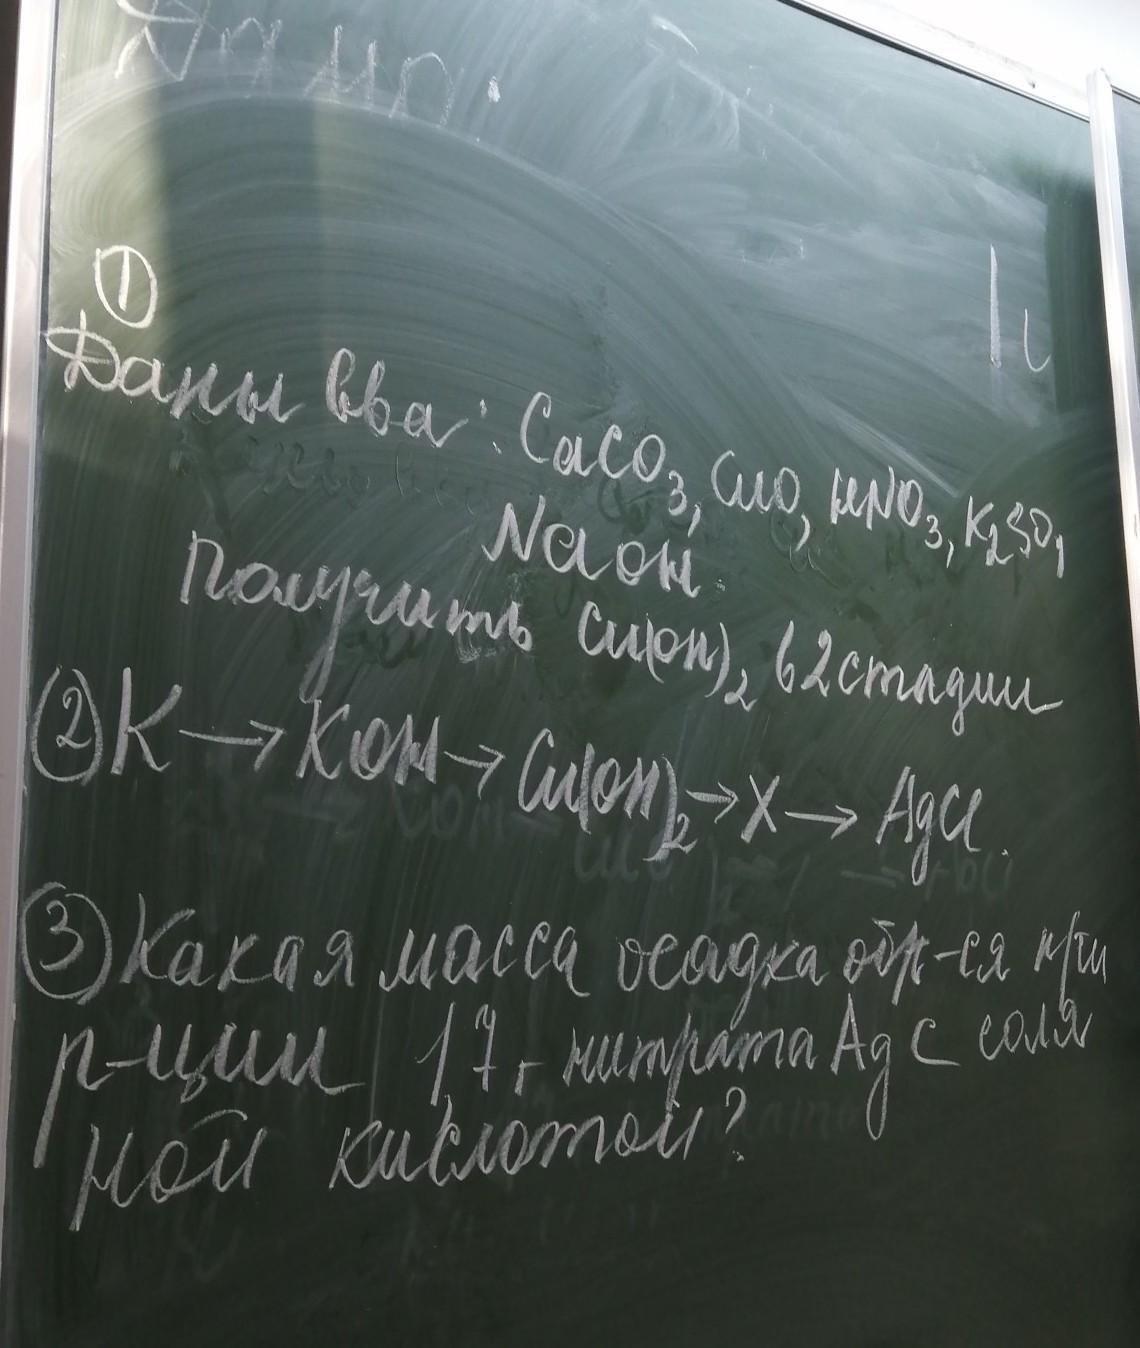 Химия.
①
Даны вва: CaCO3, CuO, HNO3, K2SO4
NaOH
Получить Cu(OH)2 в 2 стадии
② K → KOH → Cu(OH)2 → X → AgCl.
③ Какая масса осадка обр-ся при
р-ции 17г нитрата Ag с соля
ной кислотой?